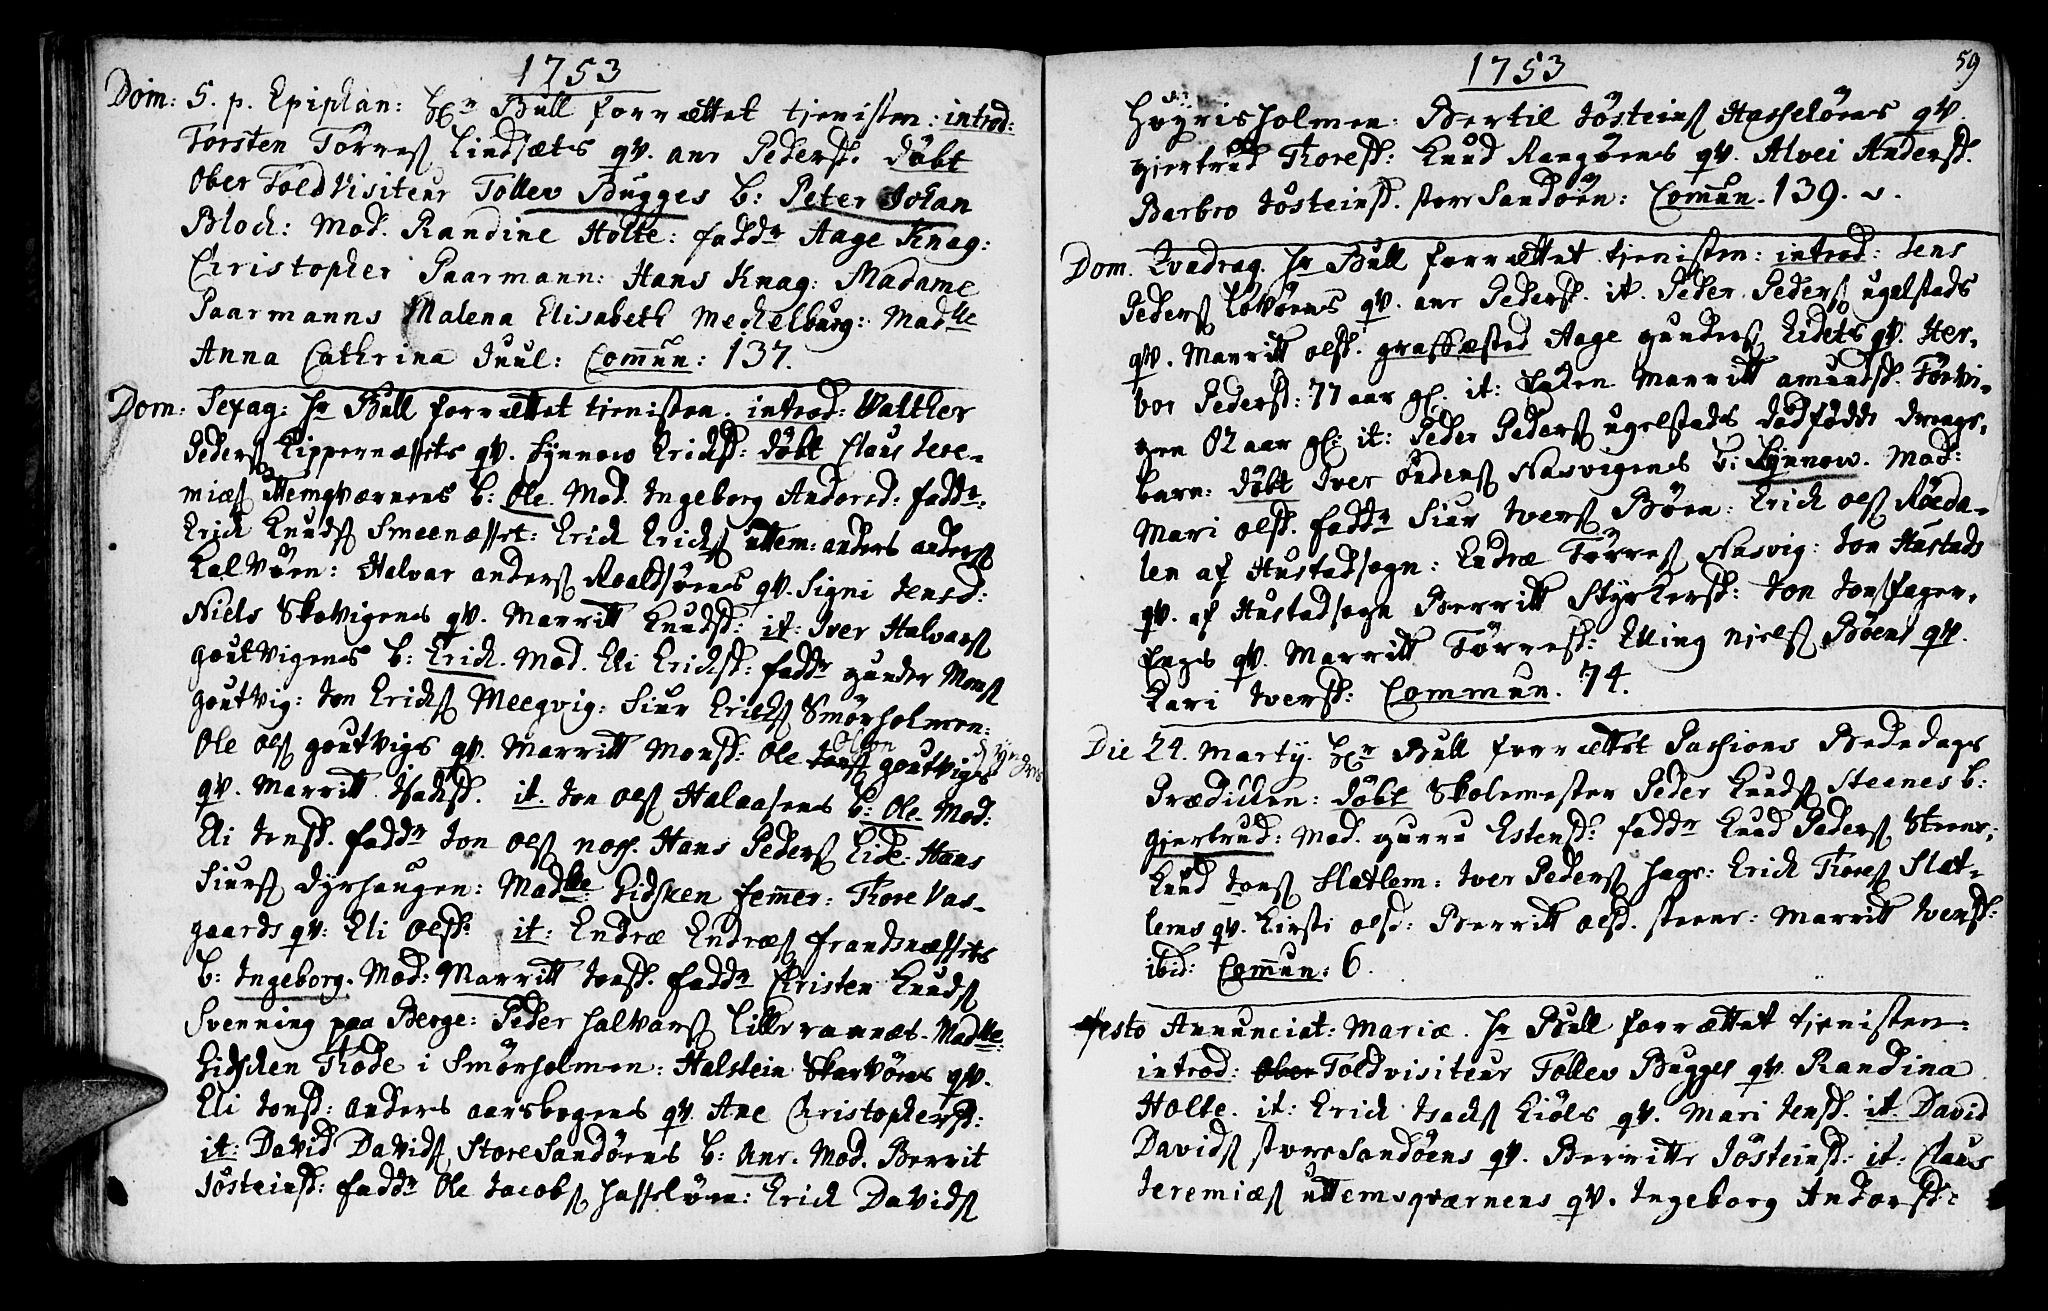 1753
Dom: 5. p. Epiphan: Hr Bull forrættet tjenisten: introd:
Torsten Törres Lindsæts qv. ane Peders. döbt
Ober Told Visiteur Tollev Bugges b: Peter Johan
Block: Mod. Randine Holte: faddr Aage Knag:
Christopher Paarmann: Hans Knag: Madame
Paarmanns Malena Elisabeth Meckelburg: Madlle
Anna Cathrina Juul: Commun: 137.
Dom: Sexag: Hr Bull forrættet tjenisten. introd: Walther
Peders Kippernæssets qv. Synnow Ericks: döbt Claus Jere-
mias uttemqværnens b: Ole. Mod. Ingeborg Andorsd: faddr.
Erick Knuds Smeenæsset: Erick Ericks uttem: anders anders
Kalvöen: Halvar anders Roaldsöens qv. Signi Jensd:
Niels Skovigens qv. Marritt Knudsd: it: Iver Halvars
goutvigens b: Erick. Mod. Eli Ericksd: faddr gunder Mons
goutvig: Jon Ericks Meegvig: Siur Ericks Smörholmen:
Ole Ols goutvigs qv. Marritt Monsd: Ole Jons Olsen goutviges d: yngres
qv. Marritt Isacksd. it. Jon Ols Halaasens b: Ole. Mod:
Eli Jensd. faddr Jon Ols noss. Hans Peders Eide: Hans
Siurs Dyrhaugen: Madlle: Gidsken femmer: Thore Vas-
gaards qv: Eli Olsd: it: Endræ Endræs frandsnæssets
b: Ingeborg. Mod: Marritt Jonsd. faddr Christen Knuds
Svenning paa Berge: Peder Halvars Lille ramnæs. Madlle:
Gidsken Thode i Smörholmen: Halstein Skarvöens qv.
Eli Jonsd: anders aarsbogens qv. Ane Christophersd:
it: David Davids Store Sandöens b: Ane. Mod. Berrit
Jösteinsd: faddr Ole Jacobs Hasselöen: Erick Davids
1753
59
Höyrisholmen: Bertil Jösteins Hasselöens qv.
gjertrud Thoresd: Knud Rangöens qv. Alvei Andersd.
Barbro Jösteinsd. store Sandöen: Commun. 139.
Dom. Qvadrag. Hr Bull forrættet tjenisten: introd: Jens
Peders Lovöens qv. ane Pedersd. it. Peder Peders ugelstads
qv. Marritt Olsd. grafkæsted Aage gunders Eidets qv. Her-
bor Pedersd: 77 aar gl. it: Enken Marritt amundsd. Törvi-
gen 82 aar gl: it: Peder Peders ugelstads dödfödde drenge-
barn: döbt Iver Endres Nasvigens b: Synnow. Mod:
Mari Olsd. faddr Siur Ivers Böen: Erick Ols Röeda-
len af Hustadsogn: Endræ Törres Nasvig: Jon Hustads
qv. af Hustadsogn Berritt Styrkersd: Jon Jons fager-
Engs qv. Marritt Törresd: Elling Niels Böens qv.
Kari Iversd: Commun. 74.
Die 24. Martij. Hr Bull forrættet Passions Bededags
Prædicken: döbt Skolemester Peder Knuds Steenes b:
Gjertrud: Mod. Gurru Estensd: faddr Knud Peders Steene;
Knud Jons Slatlem: Iver Peders Hage: Erick Thores Slat-
lems qv. Kirsti Olsd: Berritt Olsd. Steene: Marritt Iversd:
ibid: Commun: 6.
Festo Annunciat: Mariæ. Hr Bull forrættet tjenisten:
introd: Ober Toldvisiteur Tollev Bugges qv. Randina
Holte. it: Erick Isacks Kiöls qv. Mari Jensd. it. David
Davids store Sandöens qv. Berritte Jösteinsd: it: Claus
Jeremiæs uttemsqværnens qv. Ingeborg Andorsd: